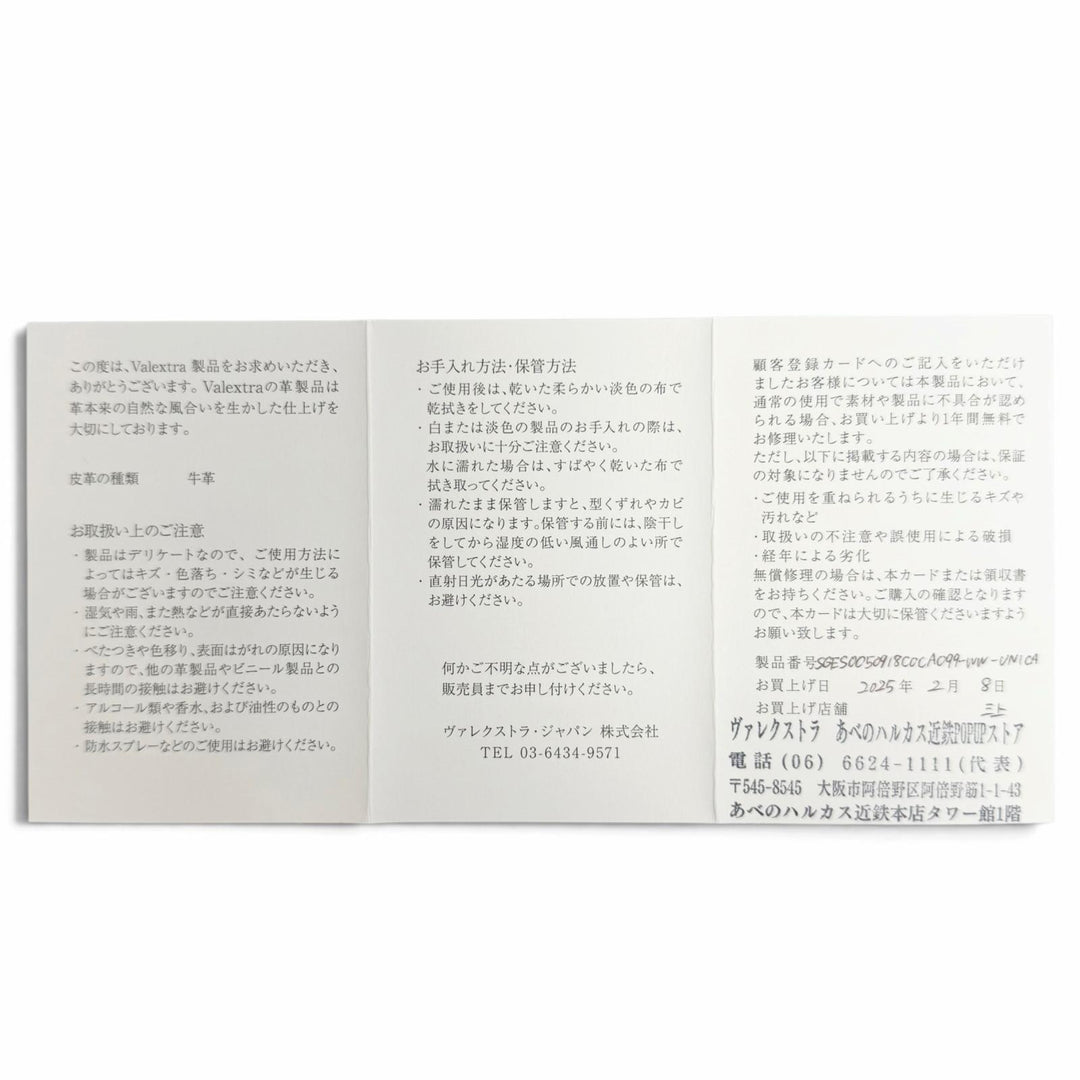 この度は、Valextra 製品をお求めいただき、
ありがとうございます。Valextraの革製品は
革本来の自然な風合いを生かした仕上げを
大切にしております。
皮革の種類　牛革
お取扱い上のご注意
・製品はデリケートなので、ご使用方法に
よってはキズ・色落ち・シミなどが生じる
場合がございますのでご注意ください。
・湿気や雨、また熱などが直接あたらないよう
にご注意ください。
・べたつきや色移り、表面はがれの原因になり
ますので、他の革製品やビニール製品との
長時間の接触はお避けください。
・アルコール類や香水、および油性のものとの
接触はお避けください。
・防水スプレーなどのご使用はお避けください。
お手入れ方法・保管方法
・ご使用後は、乾いた柔らかい淡色の布で
乾拭きをしてください。
・白または淡色の製品のお手入れの際は、
お取扱いに十分ご注意ください。
水に濡れた場合は、すばやく乾いた布で
拭き取ってください。
・濡れたまま保管しますと、型くずれやカビ
の原因になります。保管する前には、陰干し
をしてから湿度の低い風通しのよい所で
保管してください。
・直射日光があたる場所での放置や保管は、
お避けください。
何かご不明な点がございましたら、
販売員までお申し付けください。
ヴァレクストラ・ジャパン 株式会社
TEL 03-6434-9571
顧客登録カードへのご記入をいただけ
ましたお客様については本製品において、
通常の使用で素材や製品に不具合が認め
られる場合、お買い上げより1年間無料で
お修理いたします。
ただし、以下に掲載する内容の場合は、保証
の対象になりませんのでご了承ください。
・ご使用を重ねられるうちに生じるキズや
汚れなど
・取扱いの不注意や誤使用による破損
・経年による劣化
無償修理の場合は、本カードまたは領収書
をお持ちください。ご購入の確認となります
ので、本カードは大切に保管くださいますよう
お願い致します。
製品番号
お買上げ日　2025年 2月 8日
お買上げ店舗　三上
ヴァレクストラ　あべのハルカス近鉄POPUPストア
電話(06) 6624-1111(代表)
〒545-8545　大阪市阿倍野区阿倍野筋1-1-43
あべのハルカス近鉄本店タワー館1階